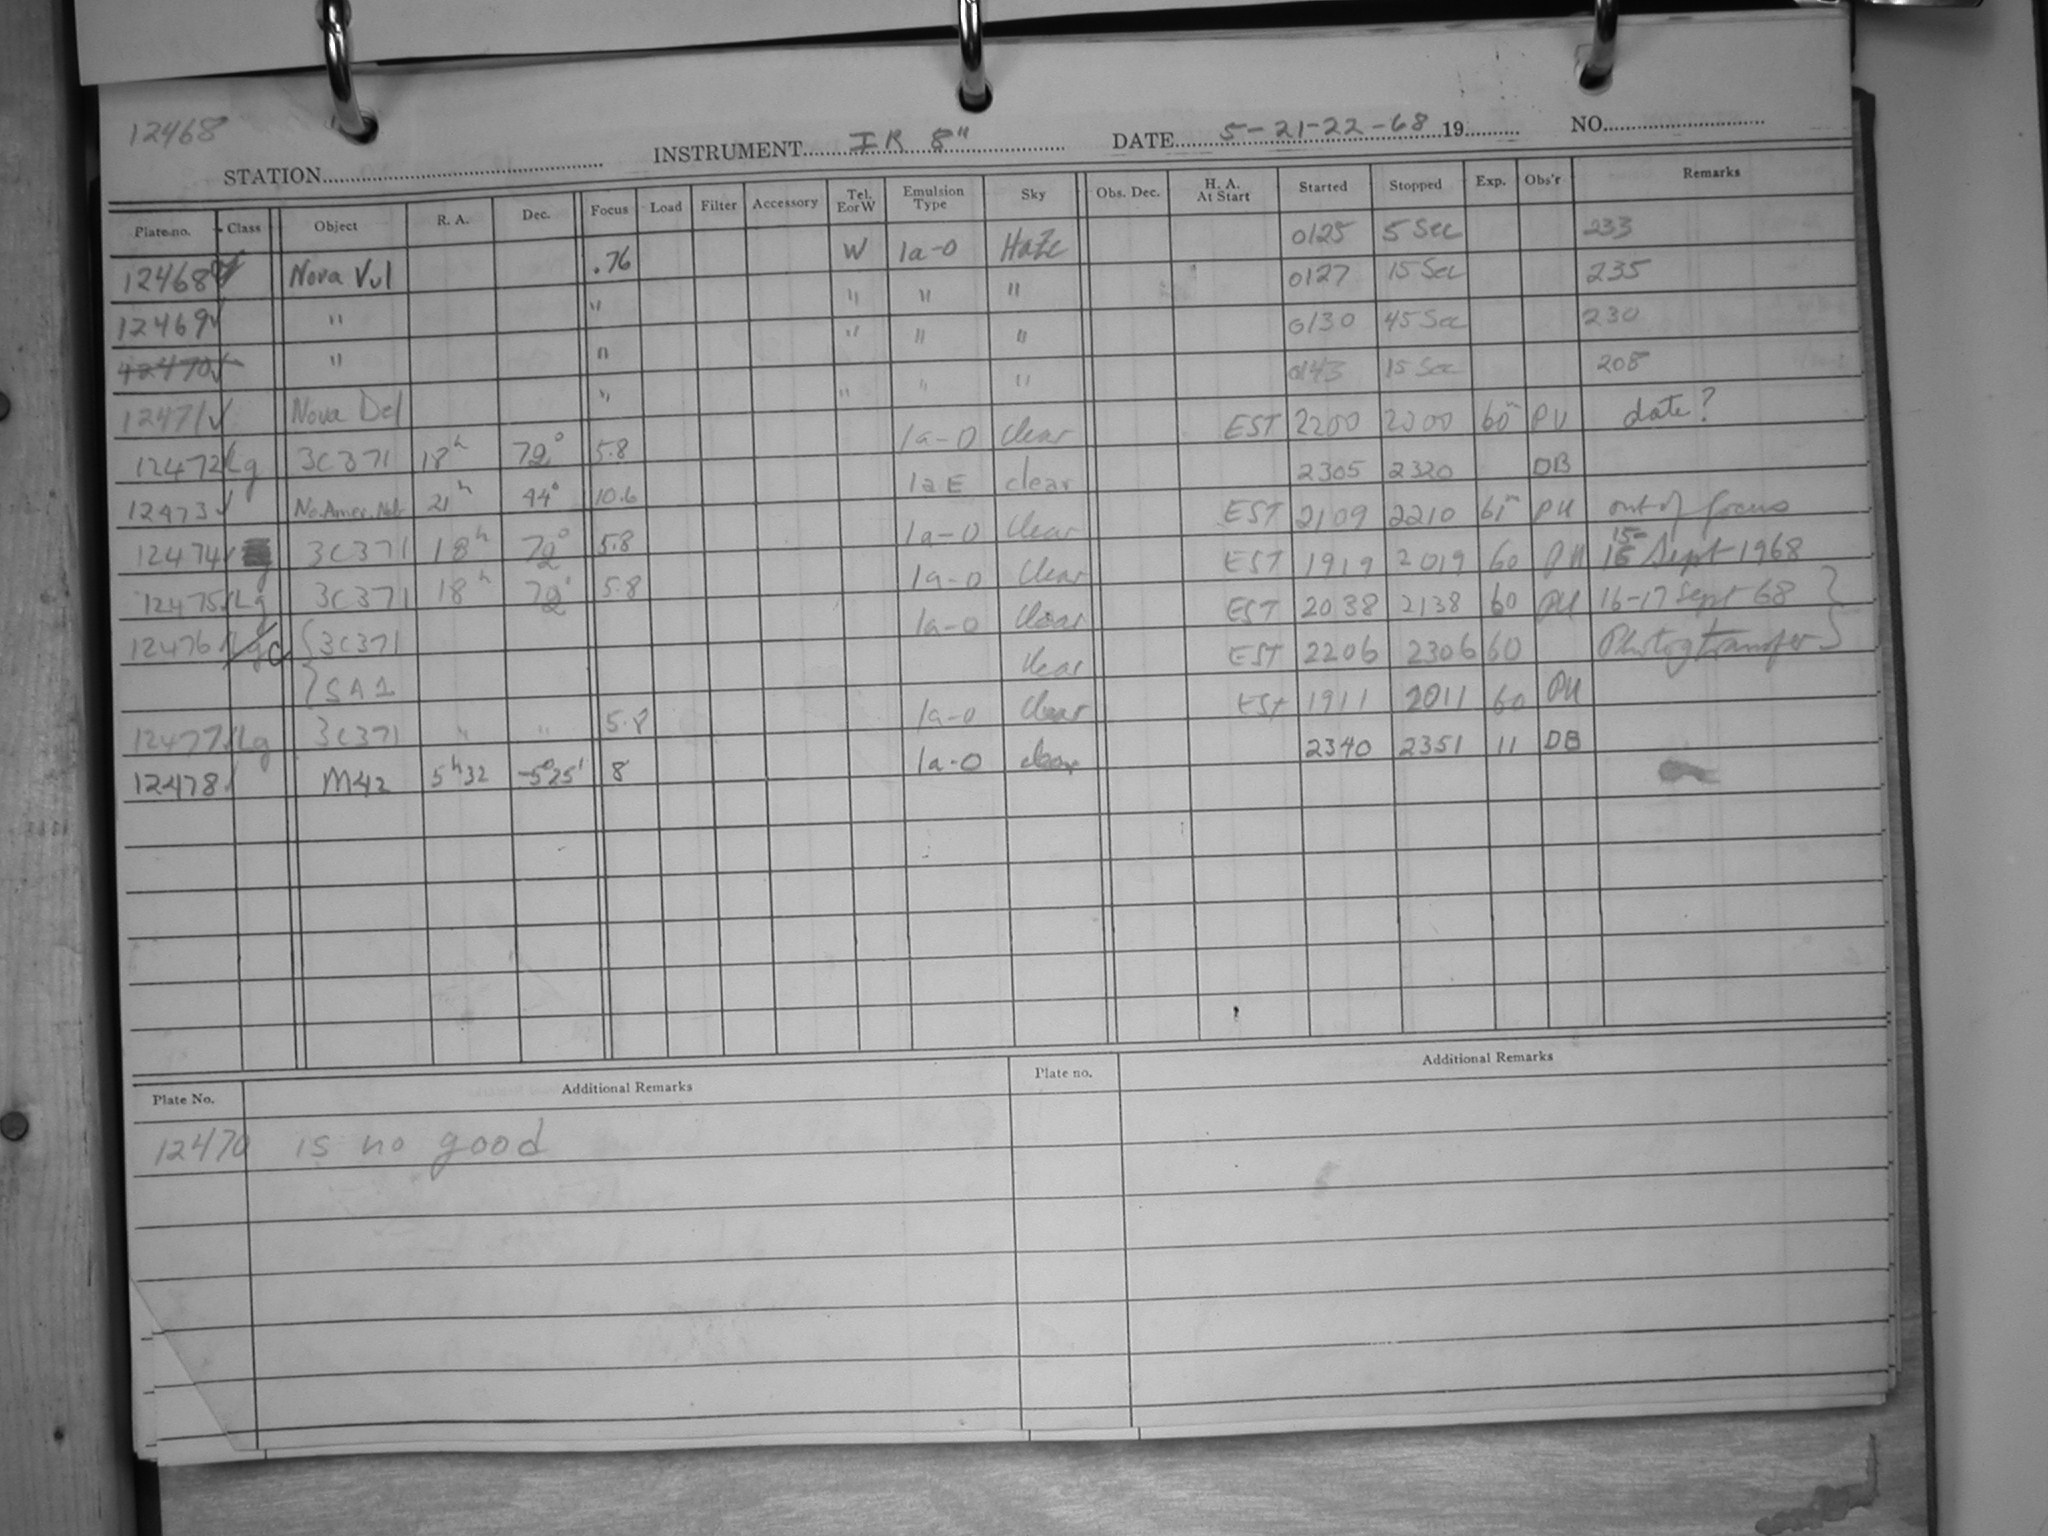 12468
STATION INSTRUMENT IR 8" DATE 5-21-22-68 19 NO.
Plate no. Class Object R. A. Dec. Focus Load Filter Accessory Tel. E or W Emulsion Type Sky Obs. Dec. H. A. At Start Started Stopped Exp. Obs'r Remarks
12468 Nova Vul .76 W 1a-O Haze 0125 5 Sec 233
12469✓ " " " " " 0127 15 Sec 235
12470✓ " " " " " 0130 45 Sec 230
12471✓ Nova Del " " " " 0143 15 Sec 208
12472 Lg 3C371 18h 72° 5.8 1a-O clear EST 2200 2300 60m PU date?
12473✓ No. Amer. Neb 21h 44° 10.6 1a E clear 2305 2320 DB
12474✓ g 3C371 18h 72° 5.8 1a-O clear EST 2109 2210 61m PU out of focus
12475 Lg 3C371 18h 72° 5.8 1a-O clear EST 1919 2019 60 PU 15-16 Sept 1968
12476 3C371 1a-O clear EST 2038 2138 60 PU 16-17 Sept 68
SA1 clear EST 2206 2306 60 Photog transfer
12477 Lg 3C371 " " 5.8 1a-O clear EST 1911 2011 60 PU
12478✓ M42 5h32 -5°25' 8 1a-O clear 2340 2351 11 DB
Plate No. Additional Remarks Plate no. Additional Remarks
12470 is no good